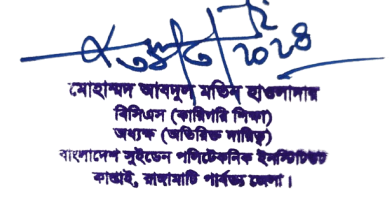 ২০২৪
মোহাম্মদ আবদুল মতিন হাওলাদার
বিসিএস (কারিগরি শিক্ষা)
অধ্যক্ষ (অতিরিক্ত দায়িত্ব)
বাংলাদেশ সুইডেন পলিটেকনিক ইনস্টিটিউট
কাপ্তাই, রাঙ্গামাটি পার্বত্য জেলা।